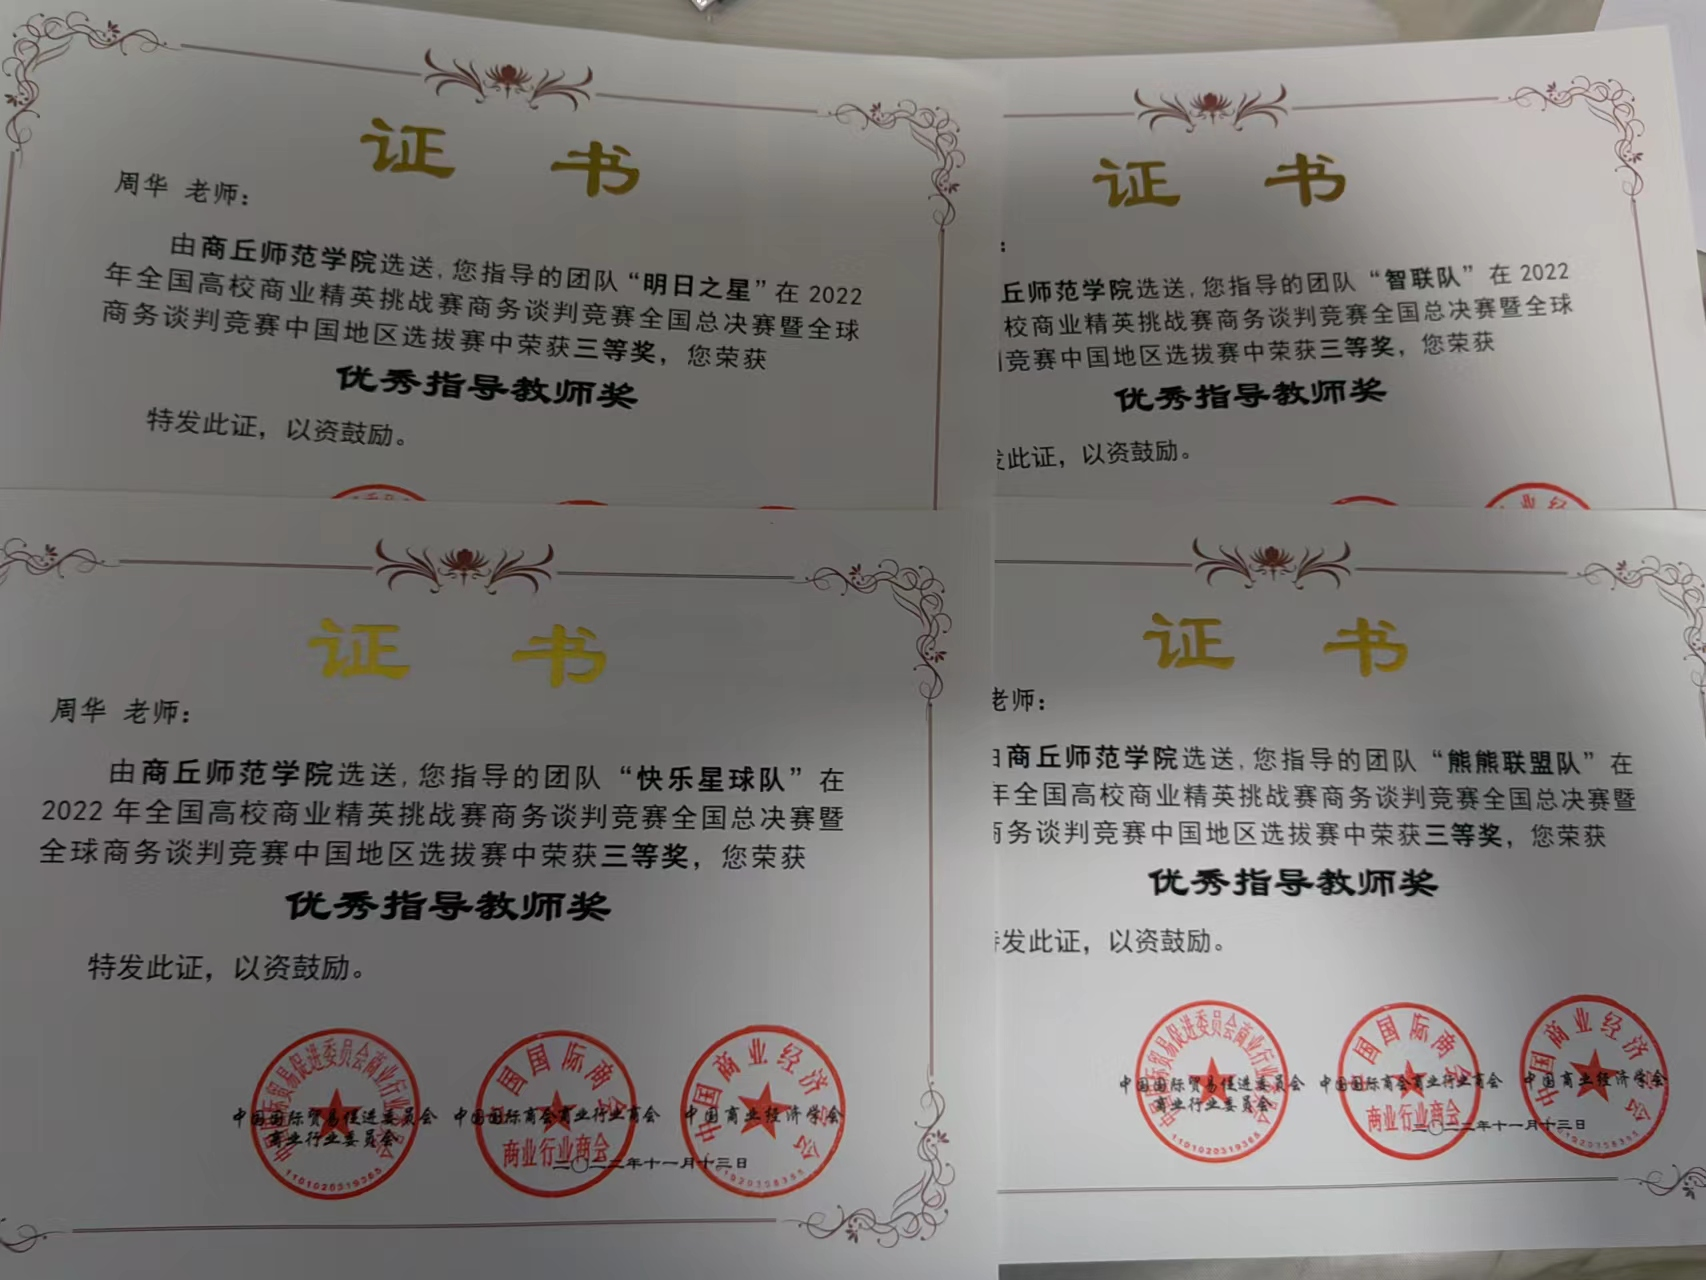 证 书
周华 老师：
由商丘师范学院选送,您指导的团队“明日之星”在2022
年全国高校商业精英挑战赛商务谈判竞赛全国总决赛暨全球
商务谈判竞赛中国地区选拔赛中荣获三等奖，您荣获
优秀指导教师奖
特发此证，以资鼓励。
证 书
：
丘师范学院选送,您指导的团队“智联队”在2022
校商业精英挑战赛商务谈判竞赛全国总决赛暨全球
竞赛中国地区选拔赛中荣获三等奖，您荣获
优秀指导教师奖
此证，以资鼓励。
商业经
证 书
周华 老师：
由商丘师范学院选送,您指导的团队“快乐星球队”在
2022年全国高校商业精英挑战赛商务谈判竞赛全国总决赛暨
全球商务谈判竞赛中国地区选拔赛中荣获三等奖，您荣获
优秀指导教师奖
特发此证，以资鼓励。
中国国际贸易促进委员会商业行业委员会
1101020319385
中国国际贸易促进委员会
商业行业委员会
中国国际商会
商业行业商会
中国国际商会商业行业商会
中国商业经济学会
中国商业经济学会
二〇二二年十一月十三日
证 书
老师：
由商丘师范学院选送,您指导的团队“熊熊联盟队”在
年全国高校商业精英挑战赛商务谈判竞赛全国总决赛暨
商务谈判竞赛中国地区选拔赛中荣获三等奖，您荣获
优秀指导教师奖
特发此证，以资鼓励。
中国国际贸易促进委员会商业行业委员会
1101020319385
中国国际贸易促进委员会
商业行业委员会
中国国际商会
商业行业商会
中国国际商会商业行业商会
中国商业经济学会
中国商业经济学会
二〇二二年十一月十三日